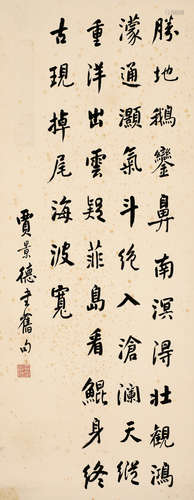 勝地鵝鑾鼻南溟得壯觀鴻
濛通灝氣斗絕入滄瀾天從
重洋出雲疑菲島看鯤身終
古現掉尾海波寬
賈景德書舊句